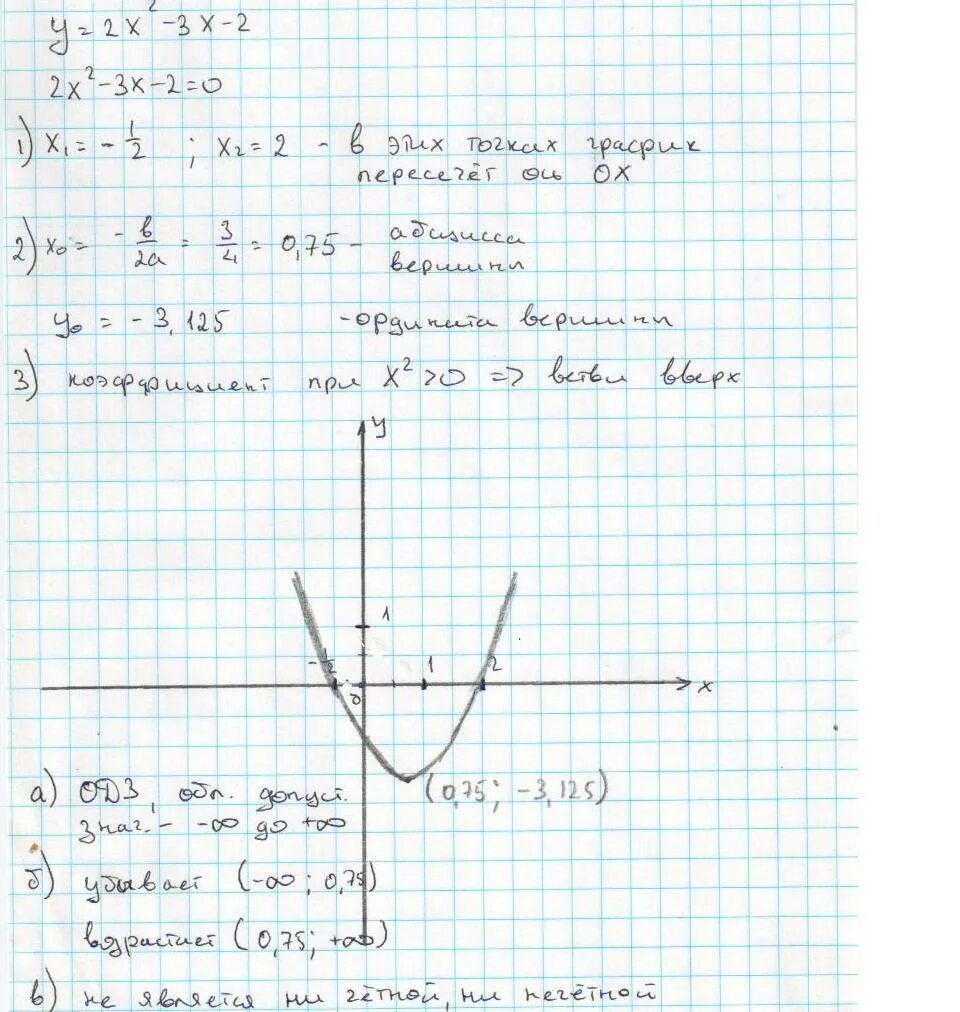 y = 2x² - 3x - 2
2x² - 3x - 2 = 0
1) x₁ = - 1/2 ; x₂ = 2 - в этих точках график
пересечёт ось OX
2) x₀ = - в/2а = 3/4 = 0,75 - абсцисса
вершины
y₀ = - 3,125 - ордината вершины
3) коэффициент при x² > 0 => ветви вверх
y
1
- 1/2 0 1 2 x
(0,75; -3,125)
а) ОДЗ, обл. допуст.
знач. - -∞ до +∞
б) убывает (-∞ ; 0,75)
возрастает (0,75; +∞)
в) не является ни чётной, ни нечётной